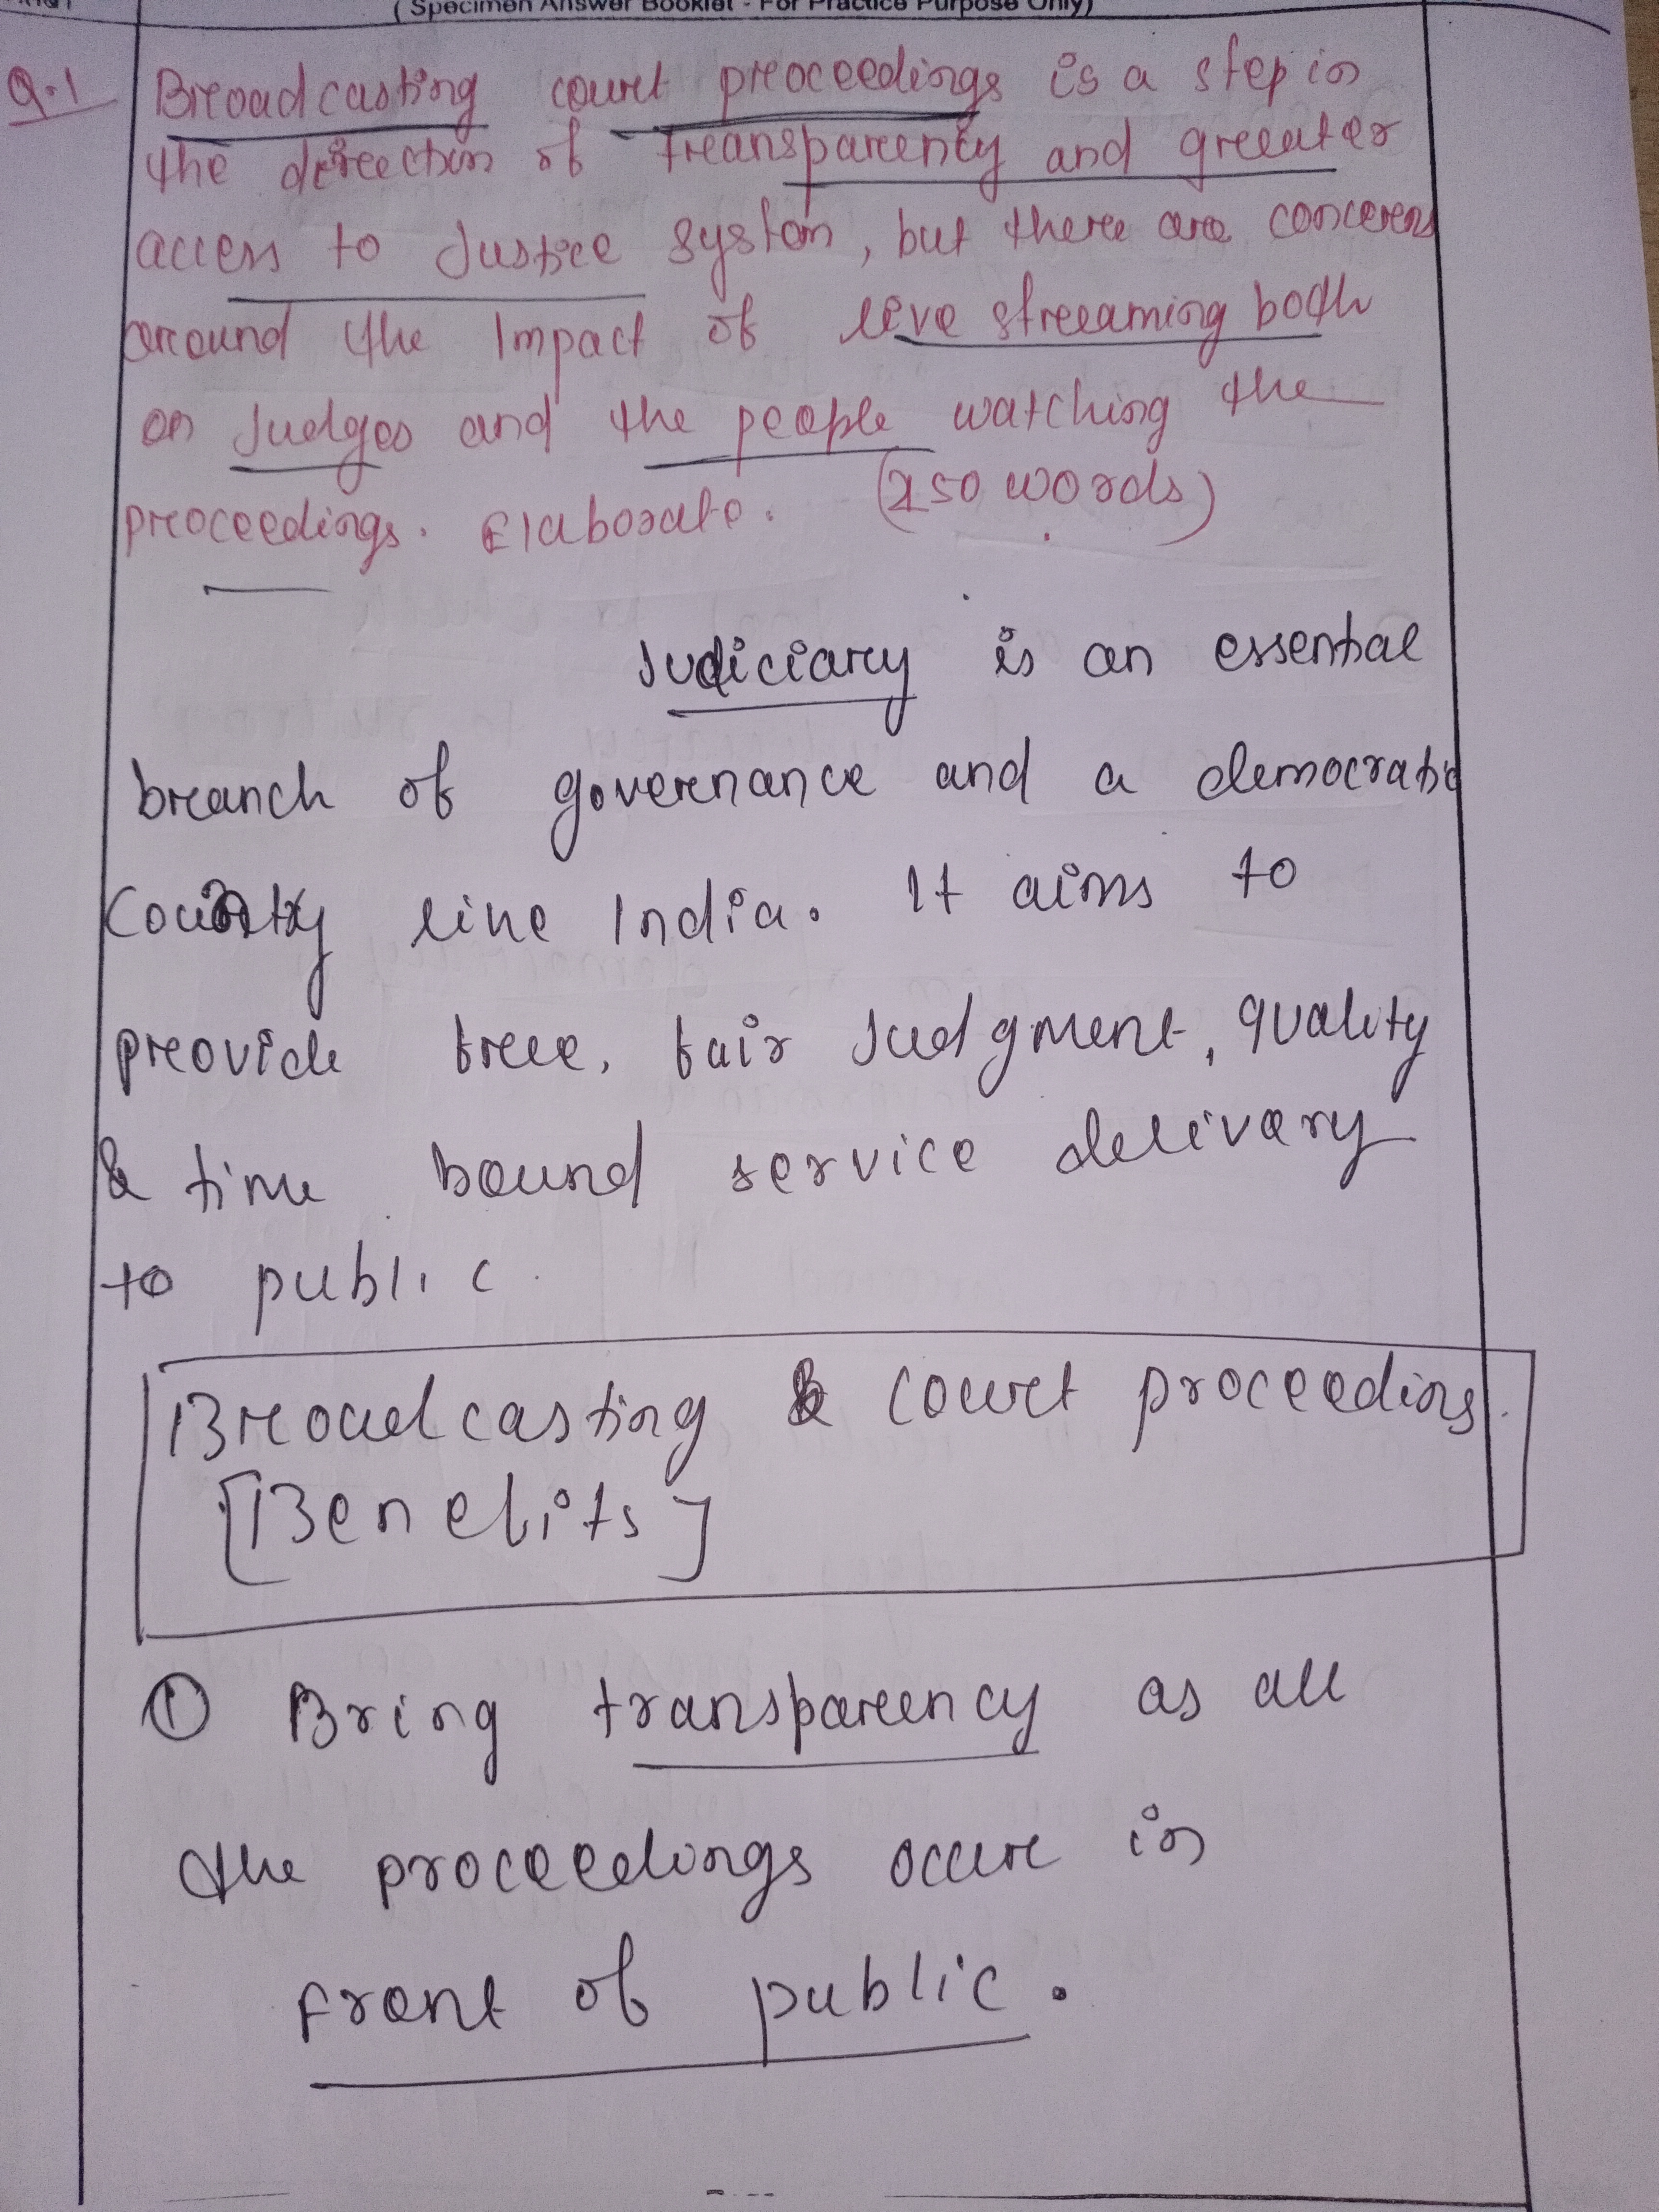 ( Specimen Answer Booklet - For Practice Purpose Only)
Q.1 Broadcasting court proceedings is a step in
the direction of transparency and greater
access to Justice system, but there are concerns
around the Impact of live streaming both
on Judges and the people watching the
proceedings. Elaborate. (250 words)
Judiciary is an essential
branch of governance and a democratic
Country like India. It aims to
provide free, fair Judgment, quality
& time bound service delivery
to public.
Broadcasting & court proceedings.
[Benefits]
① Bring transparency as all
the proceedings occur in
front of public.